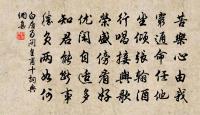 苦樂心由我
窮通命任他
坐傾張翰酒
行唱接輿歌
榮盛傍看好
優閑自適多
知君能斷事
勝負兩如何
白居易問皇甫十詞典
網集